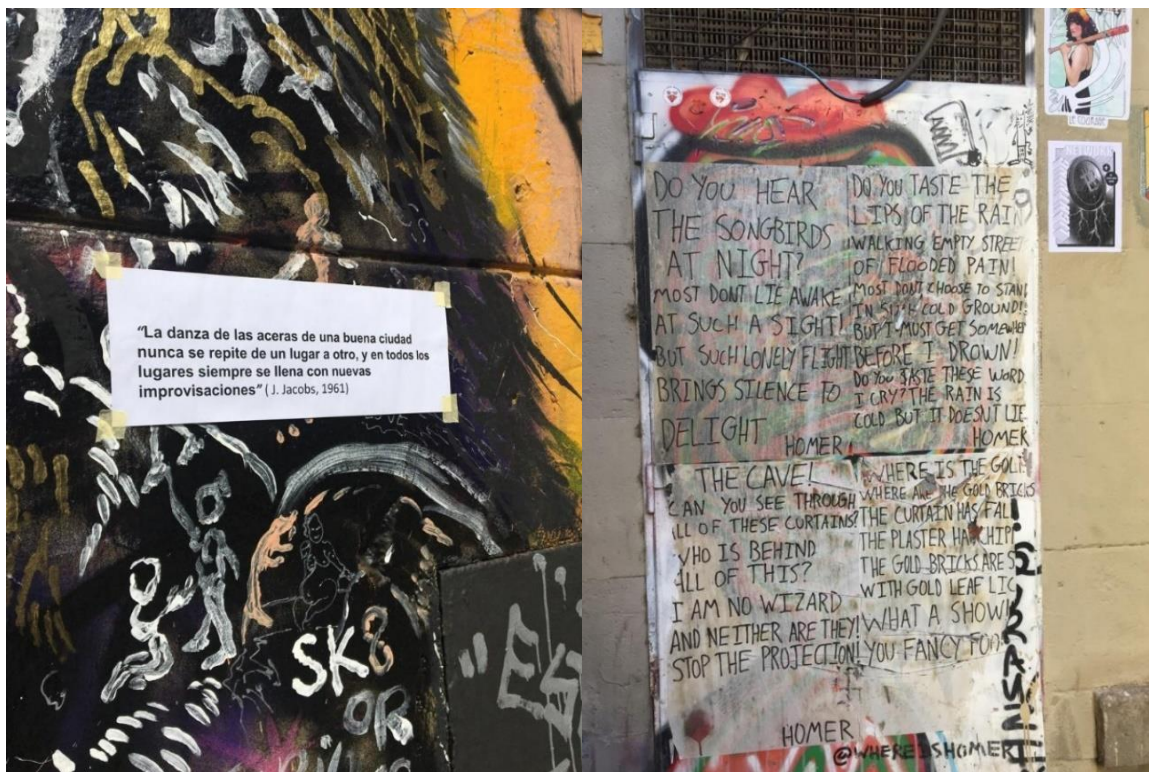 "La danza de las aceras de una buena ciudad
nunca se repite de un lugar a otro, y en todos los
lugares siempre se llena con nuevas
improvisaciones" (J. Jacobs, 1961)
SK8
OR
DO YOU HEAR
THE SONGBIRDS
AT NIGHT?
MOST DONT LIE AWAKE
AT SUCH A SIGHT!
BUT SUCH LONELY FLIGHT
BRINGS SILENCE TO
DELIGHT
HOMER
DO YOU TASTE THE
LIPS OF THE RAIN
WALKING EMPTY STREE
OF FLOODED PAIN!
MOST DONT CHOOSE TO STAN
IN COLD GROUND!
BUT I MUST GET
BEFORE I DROWN!
DO YOU TASTE THESE WORD
I CRY? THE RAIN IS
COLD BUT IT DOESNT LIE
HOMER
THE CAVE!
CAN YOU SEE THROUGH
ALL OF THESE CURTAINS?
WHO IS BEHIND
ALL OF THIS?
I AM NO WIZARD
AND NEITHER ARE THEY!
STOP THE PROJECTION!
WHERE IS THE GOL
WHERE ARE THE GOLD BRICKS
THE CURTAIN HAS FAL
THE PLASTER HA CHIPP
THE GOLD BRICKS ARE S
WITH GOLD LEAF LIC
WHAT A SHOW
YOU FANCY FOR
HOMER
@WHEREISHOMER